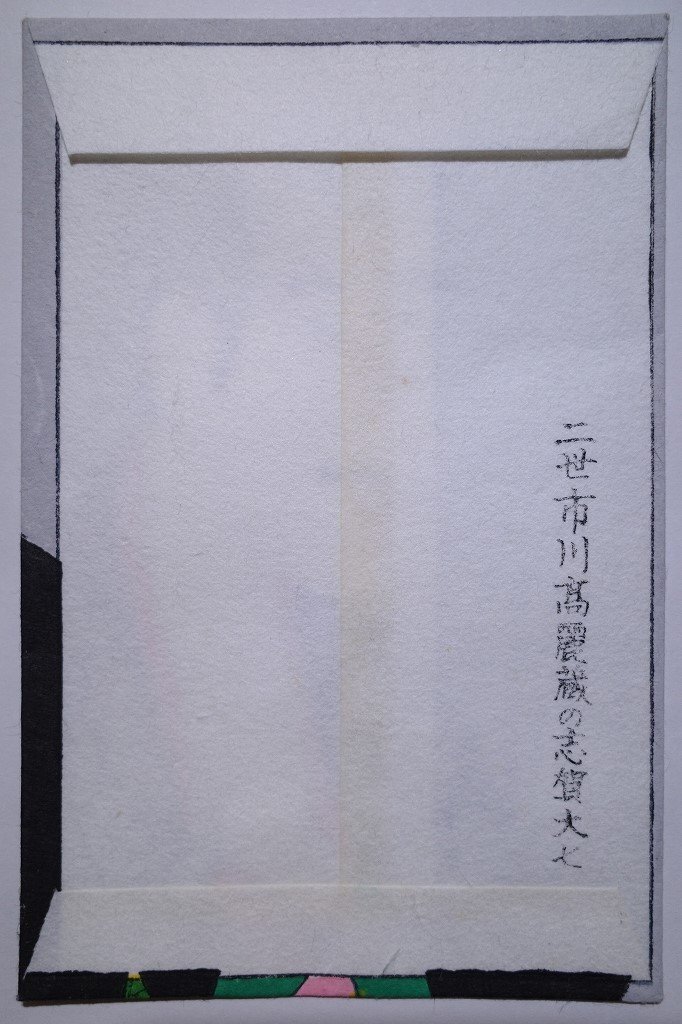 三世市川高麗蔵の志賀大七